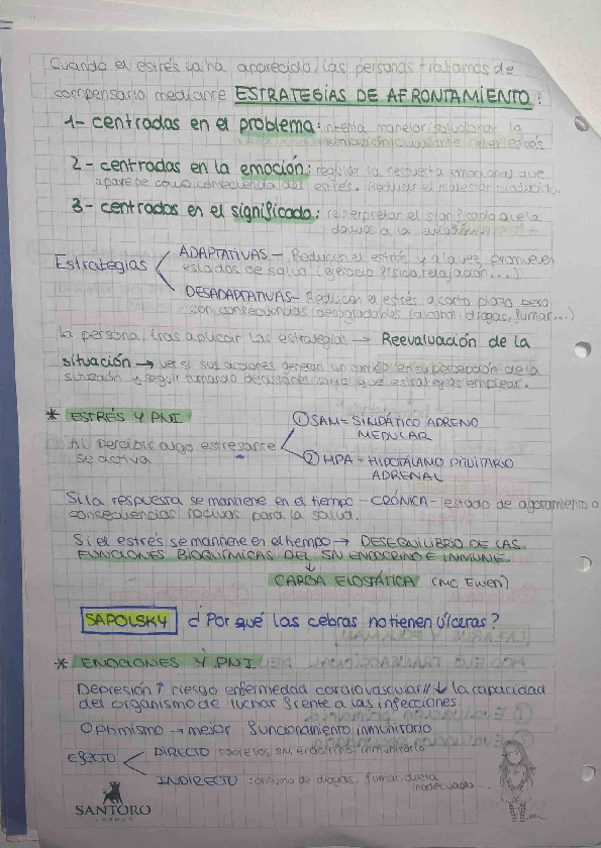 Cuando el estrés ya ha aparecido, las personas tratamos de
compensarlo mediante ESTRATEGIAS DE AFRONTAMIENTO:
1- centradas en el problema: intenta manejar/solucionar la
2- centradas en la emoción: regular la respuesta emocional que
aparece como consecuencia del estrés. Reducir el malestar producido.
3- centrados en el significado: reinterpretar el significado que le
damos a la
Estrategias
ADAPTATIVAS - Reducen el estrés y a la vez promueven
estados de salud (ejercicio físico, relajación...)
DESADAPTATIVAS - Reducen el estrés a corto plazo pero
con consecuencias desagradables (alcohol, drogas, fumar...)
La persona, tras aplicar las estrategias → Reevaluación de la
situación → ver si sus acciones generan un cambio en su percepción de la
situación y seguir tomando decisiones que estrategias emplear.
* ESTRÉS Y PNI
Al percibir algo estresante
se activa
① SAM = SIMPÁTICO ADRENO
MEDULAR
② HPA = HIPOTÁLAMO PITUITARIO
ADRENAL
Si la respuesta se mantiene en el tiempo - CRÓNICA - estado de agotamiento o
consecuencias nocivas para la salud.
Si el estrés se mantiene en el tiempo → DESEQUILIBRIO DE LAS
FUNCIONES BIOQUÍMICAS DEL SN ENDOCRINO E INMUNE.
↓
CARGA ELOSTÁTICA (Mc Ewen)
SAPOLSKY ¿Por qué las cebras no tienen úlceras?
* EMOCIONES Y PNI
Depresión ↑ riesgo enfermedad cardiovascular // ↓ la capacidad
del organismo de luchar frente a las infecciones.
Optimismo → mejor funcionamiento inmunitario
EFECTO
DIRECTO SN, endocrino, inmunitario
INDIRECTO consumo de drogas, fumar, dieta
inadecuada...
SANTORO
LONDON